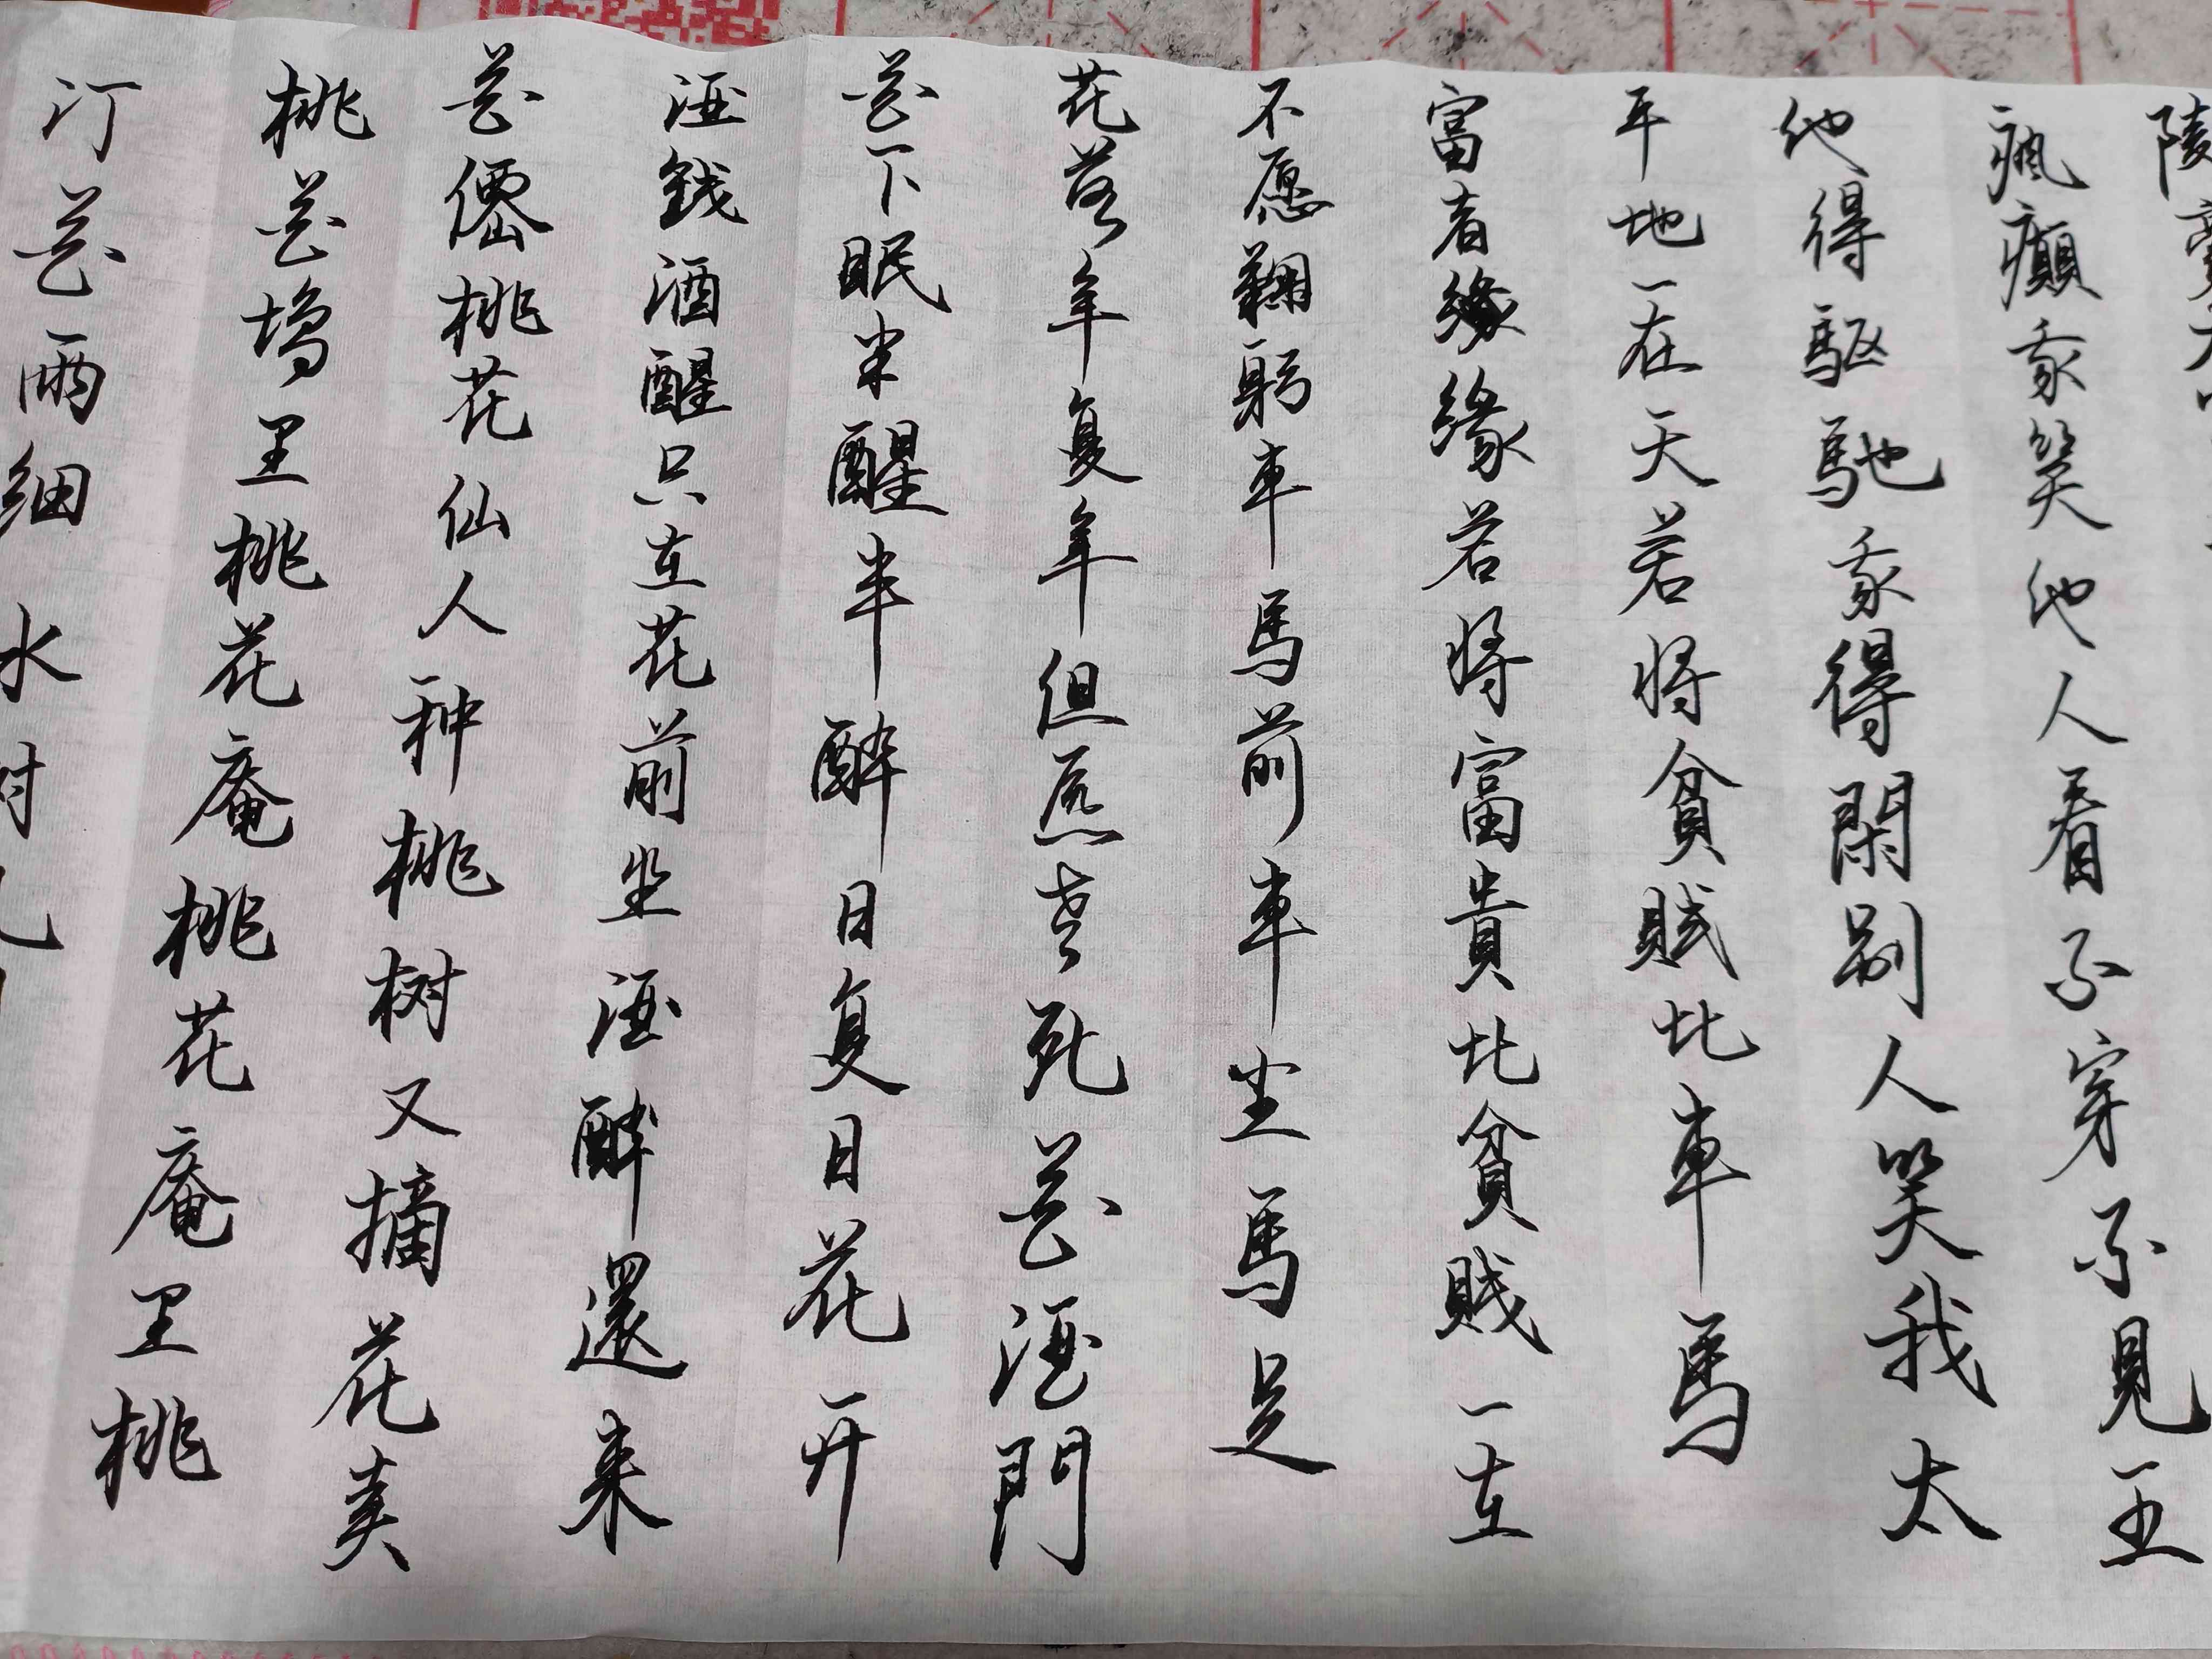 汀花雨細水
桃花塢里桃花庵桃花庵里桃
花僊桃花仙人种桃树又摘花卖
酒錢酒醒只在花前坐酒醉還来
花下眠半醒半醉日复日花开
花落年复年但愿老死花酒門
不愿鞠躬車馬前車尘馬足
富者緣緣若将富貴比貧賤一在
平地一在天若将貧賤比車馬
他得驱馳我得閑别人笑我太
疯癲我笑他人看不穿不見五
陵豪